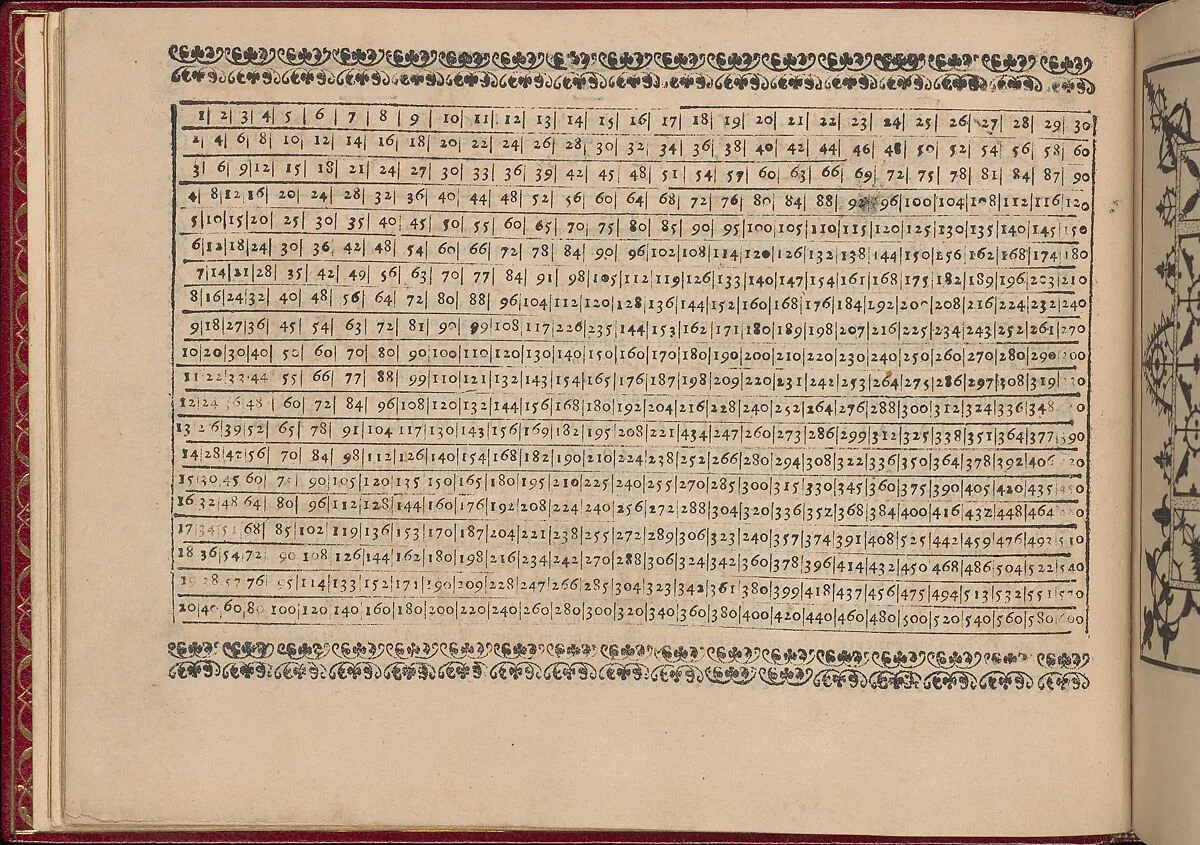 1| 2| 3| 4| 5| 6| 7| 8| 9| 10| 11| 12| 13| 14| 15| 16| 17| 18| 19| 20| 21| 22| 23| 24| 25| 26| 27| 28| 29| 30
2| 4| 6| 8| 10| 12| 14| 16| 18| 20| 22| 24| 26| 28| 30| 32| 34| 36| 38| 40| 42| 44| 46| 48| 50| 52| 54| 56| 58| 60
3| 6| 9|12| 15| 18| 21| 24| 27| 30| 33| 36| 39| 42| 45| 48| 51| 54| 57| 60| 63| 66| 69| 72| 75| 78| 81| 84| 87| 90
4| 8|12|16| 20| 24| 28| 32| 36| 40| 44| 48| 52| 56| 60| 64| 68| 72| 76| 80| 84| 88| 92| 96|100|104|108|112|116|120
5|10|15|20| 25| 30| 35| 40| 45| 50| 55| 60| 65| 70| 75| 80| 85| 90| 95|100|105|110|115|120|125|130|135|140|145|150
6|12|18|24| 30| 36| 42| 48| 54| 60| 66| 72| 78| 84| 90| 96|102|108|114|120|126|132|138|144|150|156|162|168|174|180
7|14|21|28| 35| 42| 49| 56| 63| 70| 77| 84| 91| 98|105|112|119|126|133|140|147|154|161|168|175|182|189|196|203|210
8|16|24|32| 40| 48| 56| 64| 72| 80| 88| 96|104|112|120|128|136|144|152|160|168|176|184|192|200|208|216|224|232|240
9|18|27|36| 45| 54| 63| 72| 81| 90| 99|108|117|226|235|144|153|162|171|180|189|198|207|216|225|234|243|252|261|270
10|20|30|40| 50| 60| 70| 80| 90|100|110|120|130|140|150|160|170|180|190|200|210|220|230|240|250|260|270|280|290|300
11|22|33|44| 55| 66| 77| 88| 99|110|121|132|143|154|165|176|187|198|209|220|231|242|253|264|275|286|297|308|319|
12|24|36|48| 60| 72| 84| 96|108|120|132|144|156|168|180|192|204|216|228|240|252|264|276|288|300|312|324|336|348
13|26|39|52| 65| 78| 91|104|117|130|143|156|169|182|195|208|221|434|247|260|273|286|299|312|325|338|351|364|377|390
14|28|42|56| 70| 84| 98|112|126|140|154|168|182|190|210|224|238|252|266|280|294|308|322|336|350|364|378|392|406
15|30|45|60| 75| 90|105|120|135|150|165|180|195|210|225|240|255|270|285|300|315|330|345|360|375|390|405|420|435|450
16|32|48|64| 80| 96|112|128|144|160|176|192|208|224|240|256|272|288|304|320|336|352|368|384|400|416|432|448|464
17|34|51|68| 85|102|119|136|153|170|187|204|221|238|255|272|289|306|323|240|357|374|391|408|525|442|459|476|492|510
18|36|54|72| 90|108|126|144|162|180|198|216|234|242|270|288|306|324|342|360|378|396|414|432|450|468|486|504|522|540
19|28|57|76| 95|114|133|152|171|190|209|228|247|266|285|304|323|342|361|380|399|418|437|456|475|494|513|532|551|570
20|40|60|80|100|120|140|160|180|200|220|240|260|280|300|320|340|360|380|400|420|440|460|480|500|520|540|560|580|600